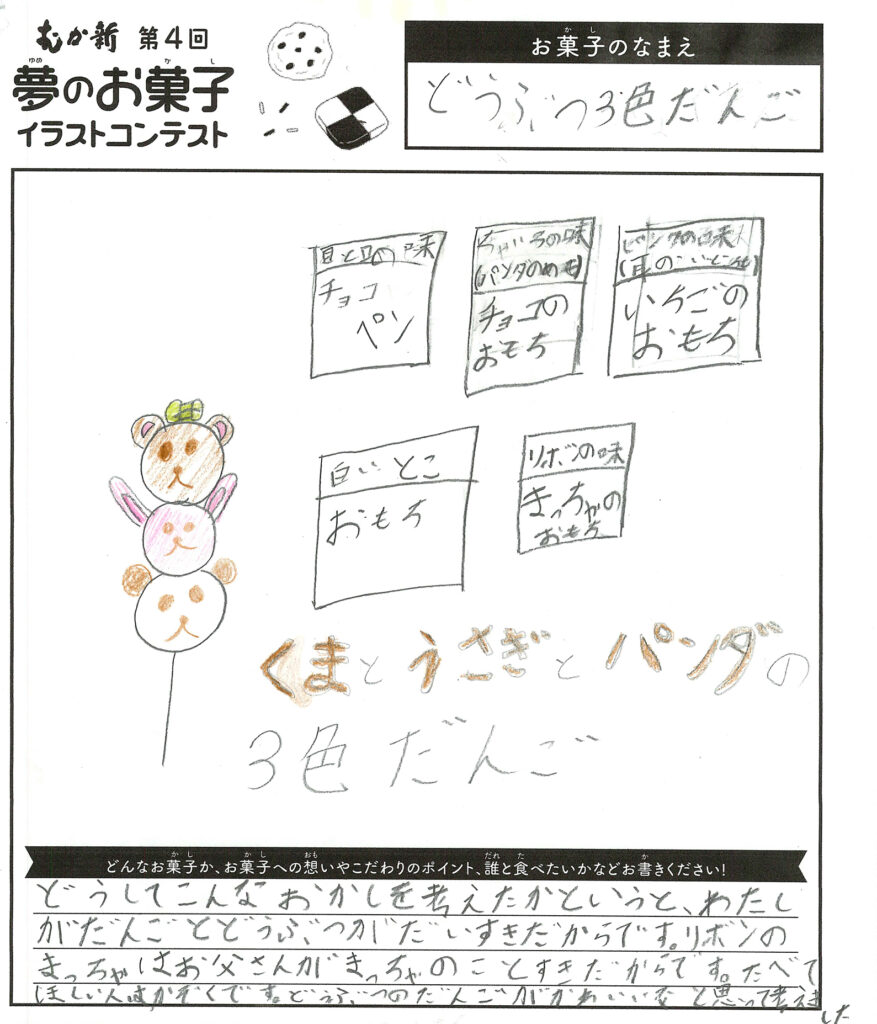 むか新 第4回
夢のお菓子
イラストコンテスト
お菓子のなまえ
どうぶつ3色だんご
目と口の味
チョコ
ペン
ちゃいろの味
(パンダのめも)
チョコの
おもち
ピンクの味
(耳のこいとこも)
いちごの
おもち
白いとこ
おもち
リボンの味
まっちゃの
おもち
くまとうさぎとパンダの
3色だんご
どんなお菓子か、お菓子への想いやこだわりのポイント、誰と食べたいかなどお書きください!
どうしてこんなおかしを考えたかというと、わたし
がだんごとどうぶつがだいすきだからです。リボンの
まっちゃはお父さんがまっちゃのことすきだからです。たべて
ほしい人はかぞくです。どうぶつのだんごがかわいいなと思って考えま
した